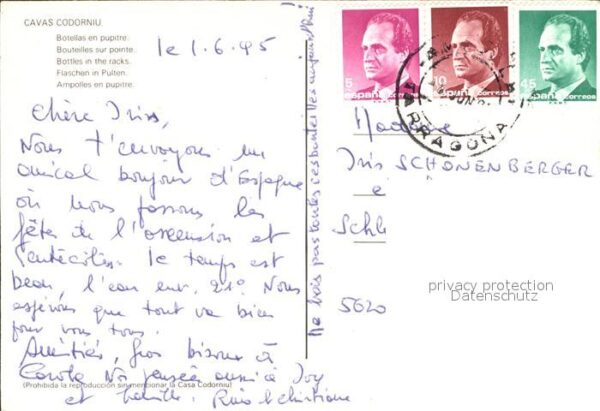 CAVAS CODORNIU
Botellas en pupitre.
Bouteilles sur pointe.
Bottles in the racks.
Flaschen in Pulten.
Ampolles en pupitre.
le 1.6.95
Chère Iris,
Nous t'envoyons un
amical bonjour d'Espagne
où nous passons les
fête de l'ascension et
Pentecôtes. le temps est
beau, l'eau env. 21°. Nous
espérons que tout va bien
pour vous tous.
Amitiés, gros bisous à
Carole. Nos pensée aussi à Joy
et famille.
(Prohibida la reproducción sin mencionar la Casa Codorniu)
Ne bois pas toutes ces bouteilles aujourd'hui!
5
españa correos
10
españa correos
45
españa correos
TARRAGONA
Madame
Iris SCHÖNENBERGER
è
Schl
5620
privacy protection
Datenschutz